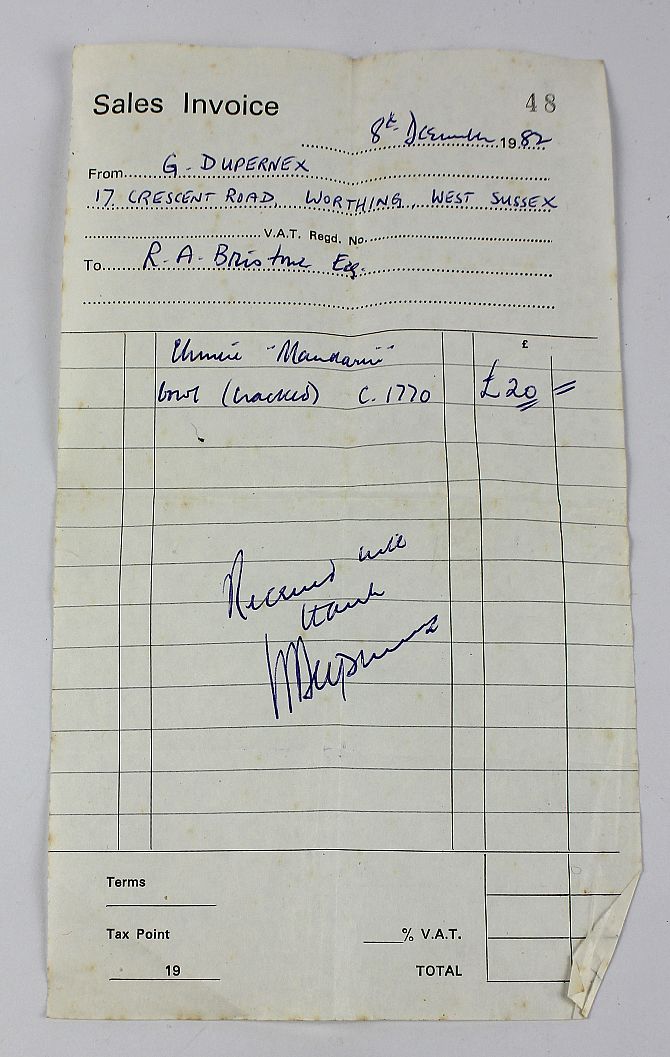 Sales Invoice 48
8th December 1982
From G. DUPERNEX
17 CRESCENT ROAD, WORTHING, WEST SUSSEX
V.A.T. Regd. No.
To R. A. Bristow Esq.
£
Chinese "Mandarin"
bowl (cracked) C. 1770 £20 =
Received with
thanks
Dupernex
Terms
Tax Point % V.A.T.
19 TOTAL